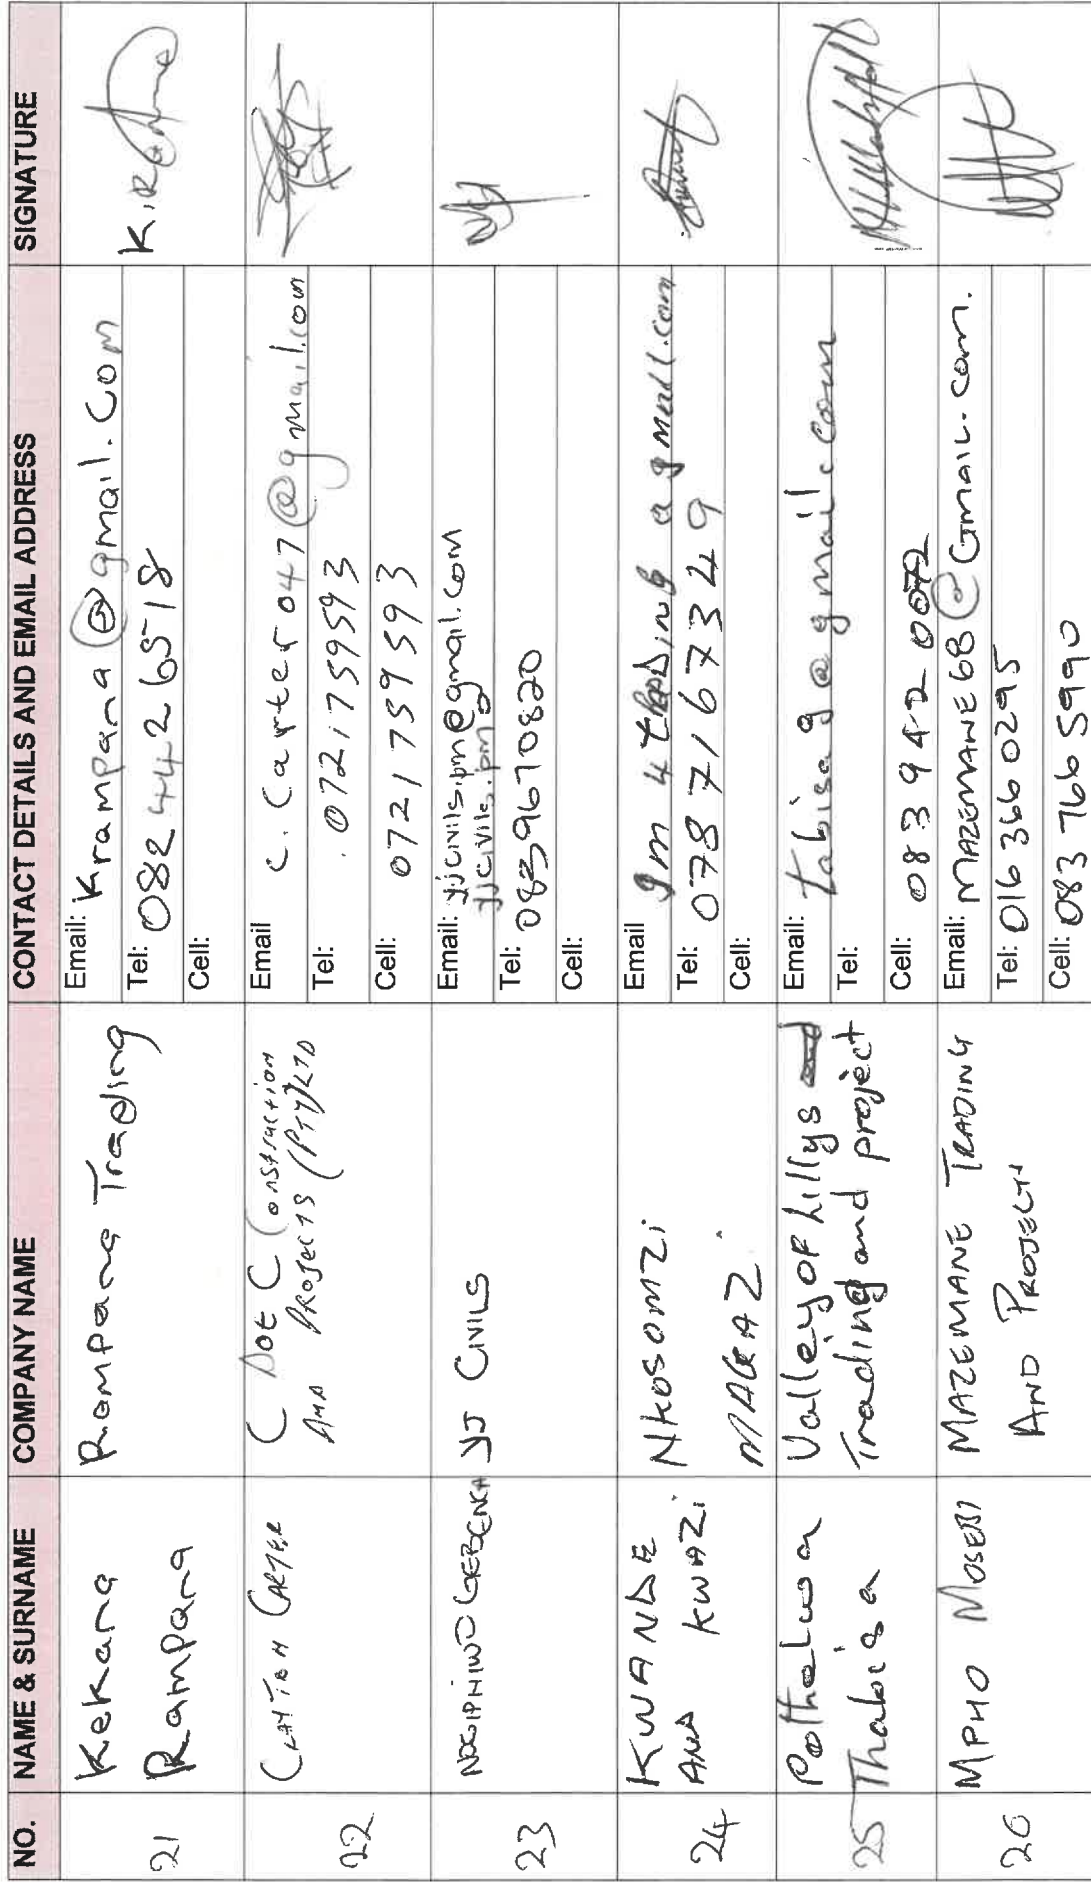 NO. NAME & SURNAME COMPANY NAME CONTACT DETAILS AND EMAIL ADDRESS SIGNATURE
21
Kekana
Rampana
Rampana Trading
Email: Krampana@gmail.com
Tel: 0824426518
Cell:
K.R
22
Carter
C Dot C Construction
And Projects (PTY)LTD
Email c.carter047@gmail.com
Tel: 0721759593
Cell: 0721759593
23
YJ CIVILS
Email: yjcivils.pm@gmail.com
yjcivils.pm
Tel: 0839670820
Cell:
24
KWANDE
AND KWAZi
Nkosomzi
MAGAZ
Email Jm4tRADing a gmail.com
Tel: 0787167349
Cell:
25
Pothelwa
Thabisa
Valley OF Lillys and
Trading and project
Email: tabisag@gmail.com
Tel:
Cell: 0839420072
26
MPHO
MAZEMANE TRADING
AND PROJECTS
Email: MAZEMANE68@Gmail.com.
Tel: 016 366 0295
Cell: 083 766 5990